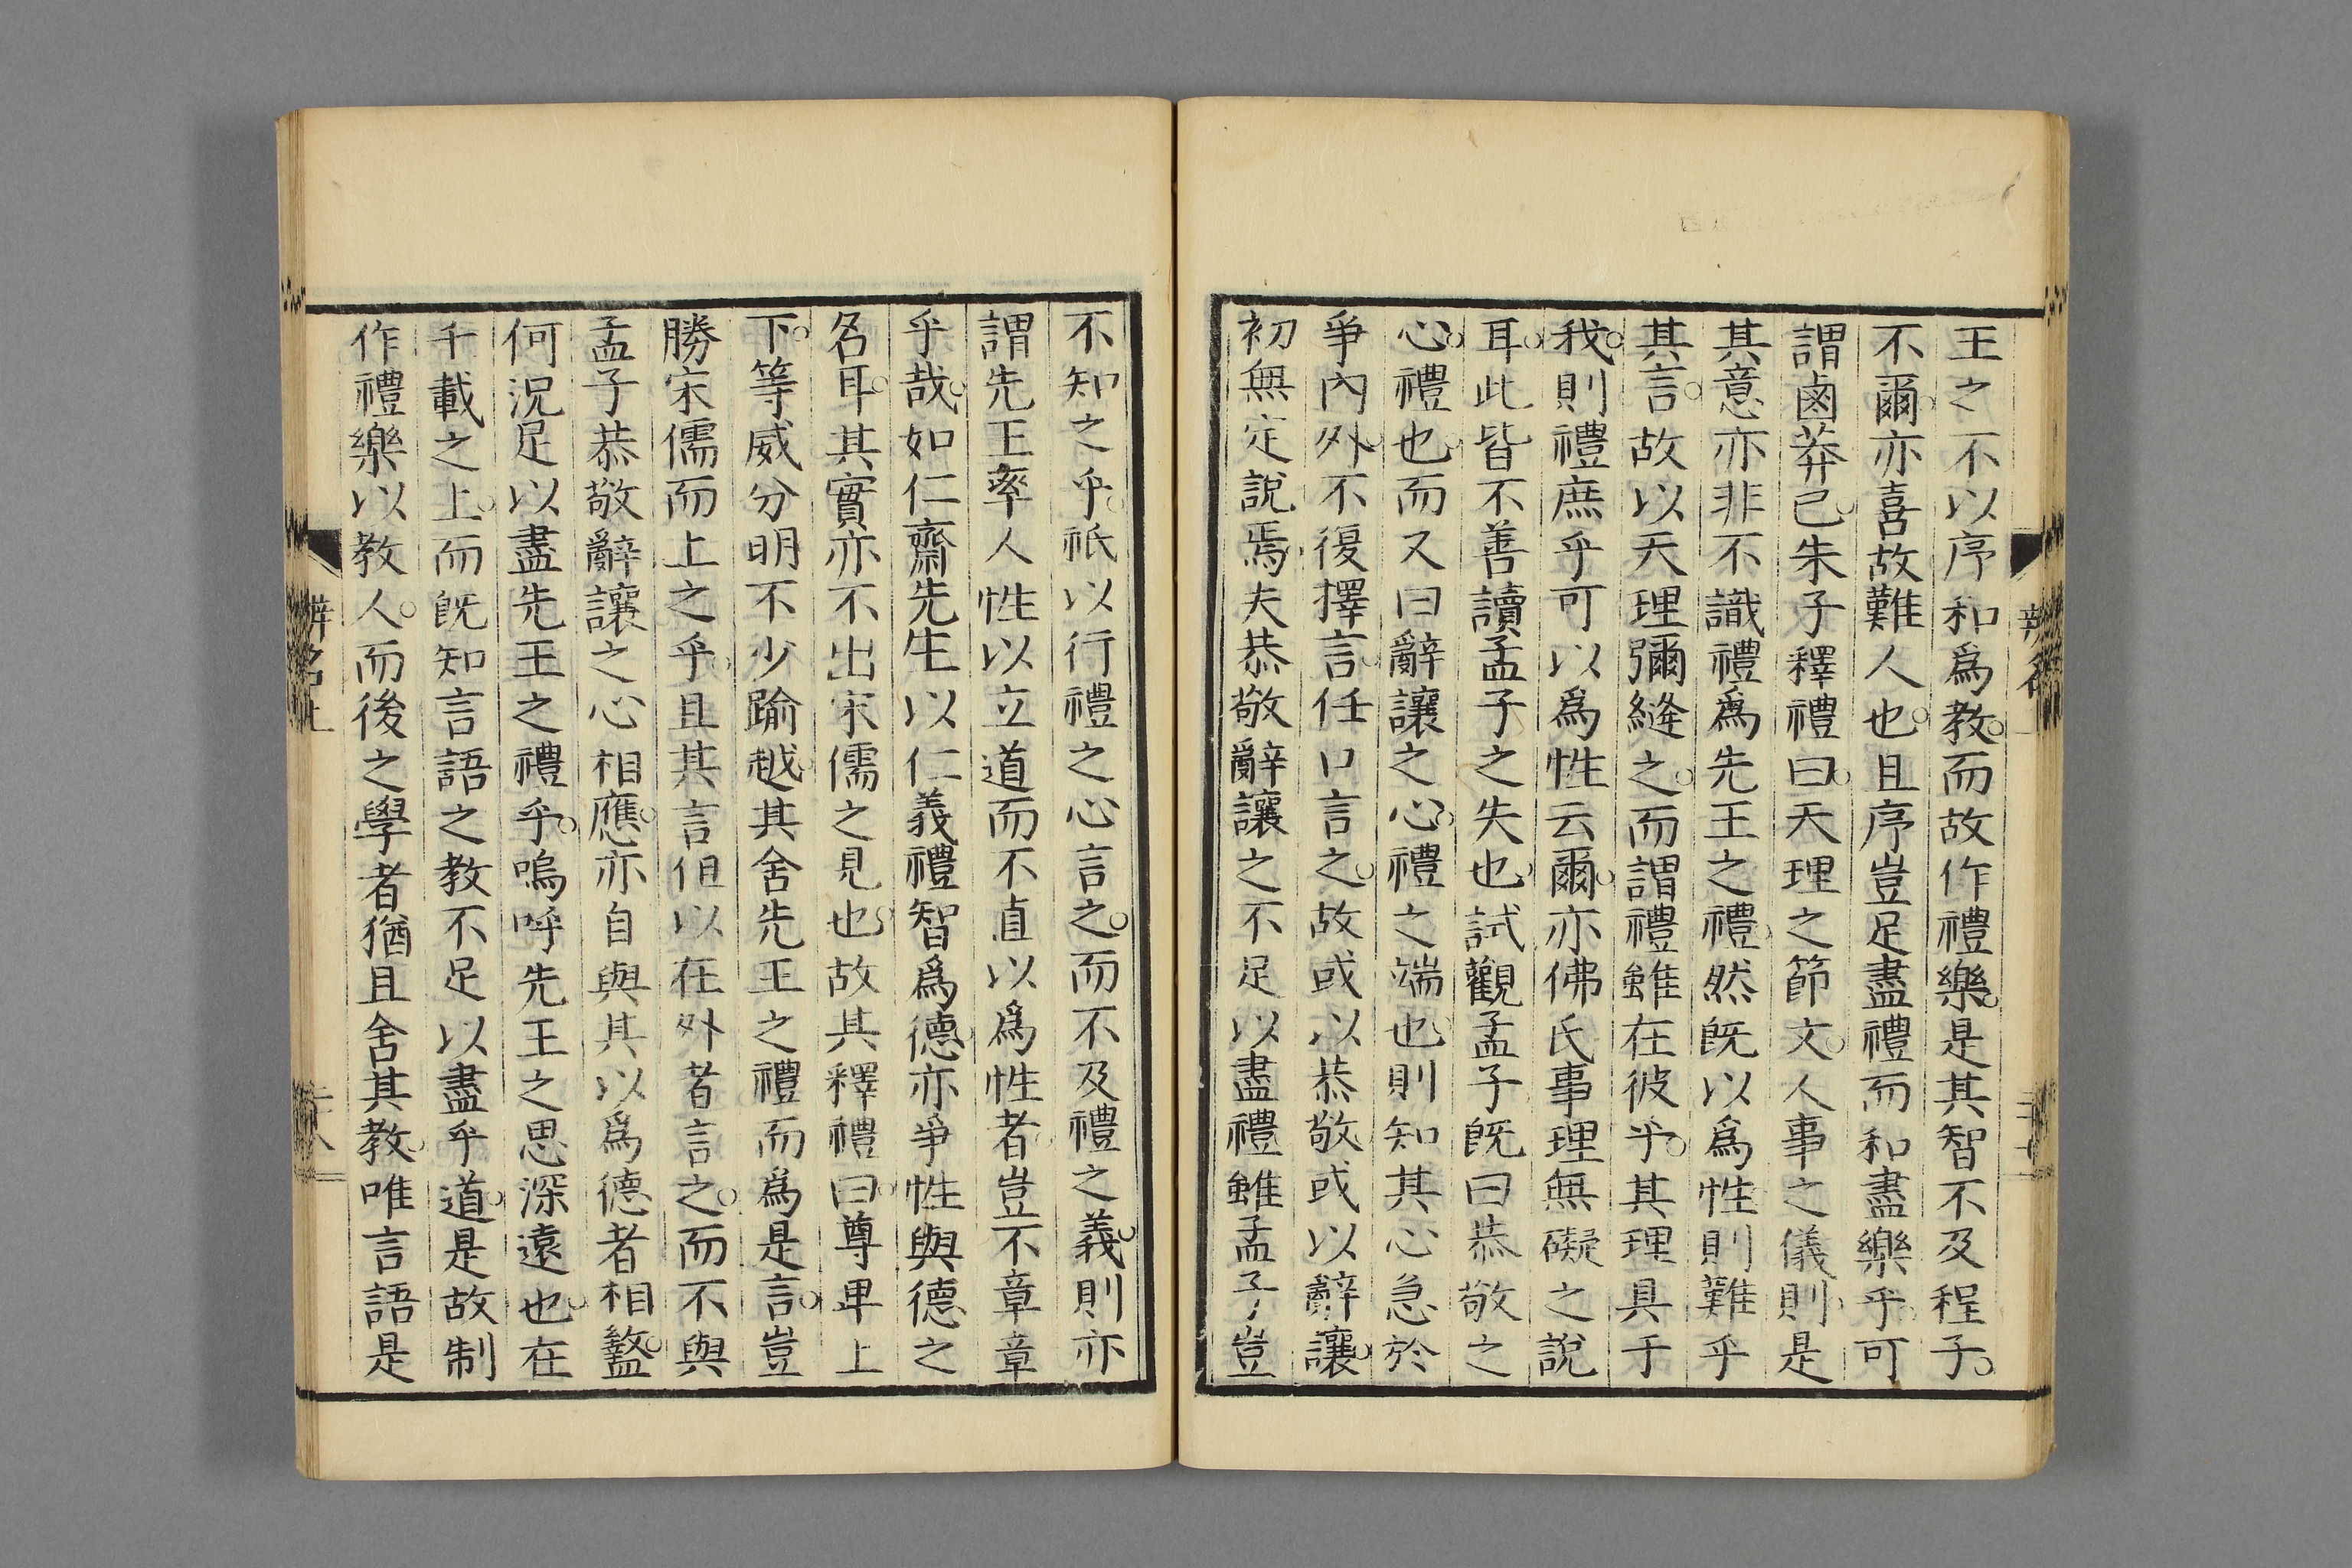 王之不以序和爲教。而故作禮樂。是其智不及程子。
不爾。亦喜故難人也。且序豈足盡禮而和盡樂乎。可
謂鹵莽已。朱子釋禮曰。天理之節文。人事之儀則。是
其意亦非不識禮爲先王之禮。然旣以爲性則難乎
其言。故以天理彌縫之。而謂禮雖在彼乎。其理具于
我。則禮庶乎可以爲性云爾。亦佛氏事理無礙之說
耳。此皆不善讀孟子之失也。試觀孟子旣曰恭敬之
心。禮也。而又曰辭讓之心。禮之端也。則知其心急於
爭內外。不復擇言。任口言之。故或以恭敬或以辭讓。
初無定說焉。夫恭敬辭讓之不足以盡禮。雖孟子豈
不知之乎。祇以行禮之心言之。而不及禮之義。則亦
謂先王率人性以立道而不直以爲性者。豈不章章
乎哉。如仁齋先生以仁義禮智爲德。亦爭性與德之
名耳。其實亦不出宋儒之見也。故其釋禮曰。尊卑上
下。等威分明。不少踰越。其舍先王之禮而爲是言。豈
勝宋儒而上之乎。且其言但以在外者言之。而不與
孟子恭敬辭讓之心相應。亦自與其以爲德者相盭。
何況足以盡先王之禮乎。嗚呼先王之思深遠也。在
千載之上。而旣知言語之教不足以盡乎道。是故制
作禮樂以教人。而後之學者猶且舍其教。唯言語是
辨名上